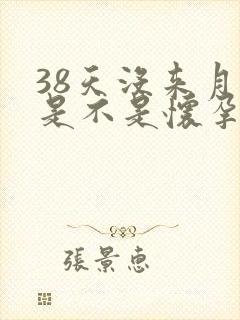 38天没来月
是不是懷孕
張景惠